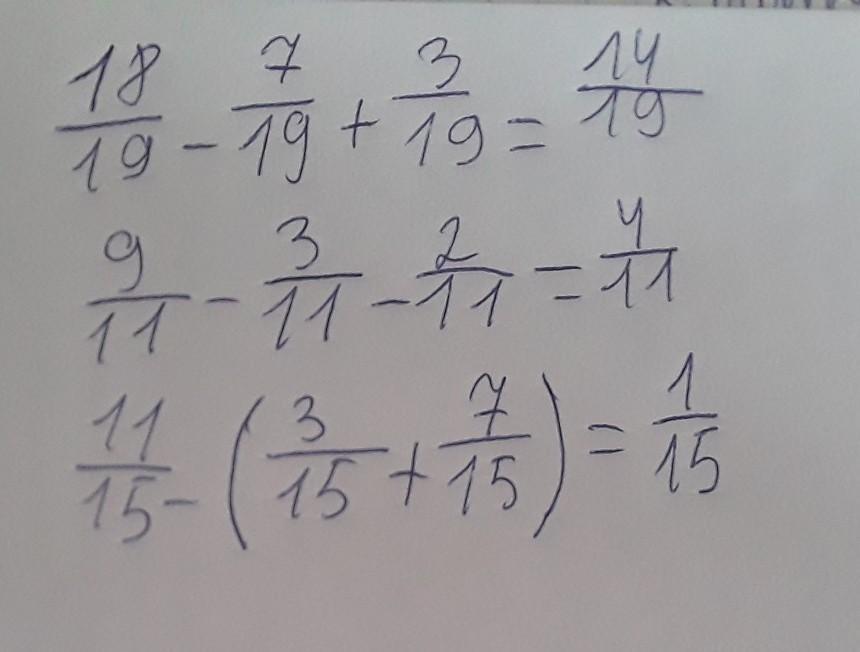 18/19 - 7/19 + 3/19 = 14/19
9/11 - 3/11 - 2/11 = 4/11
11/15 - (3/15 + 7/15) = 1/15